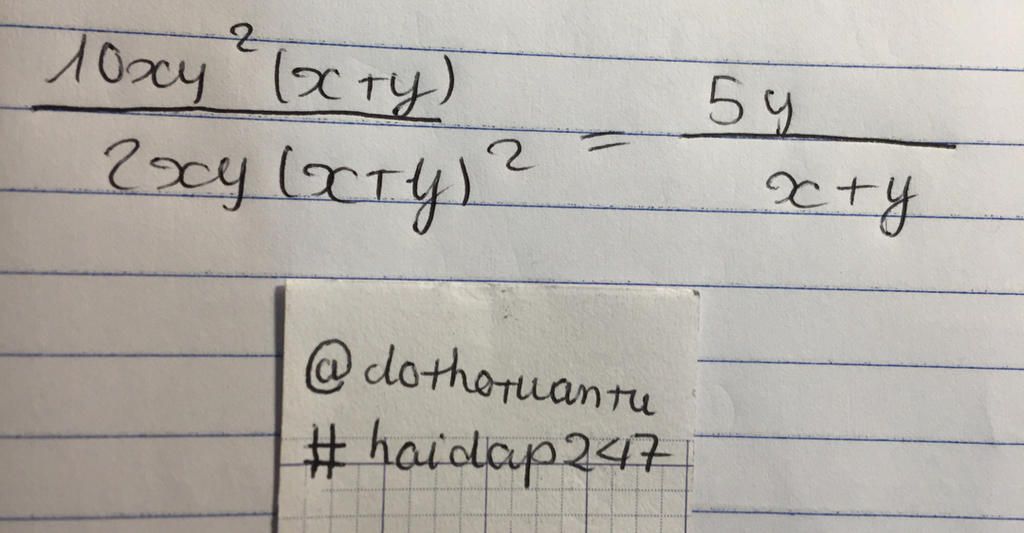 10xy²(x+y) / 2xy(x+y)² = 5y / x+y
@dothotuantu
#haidap247